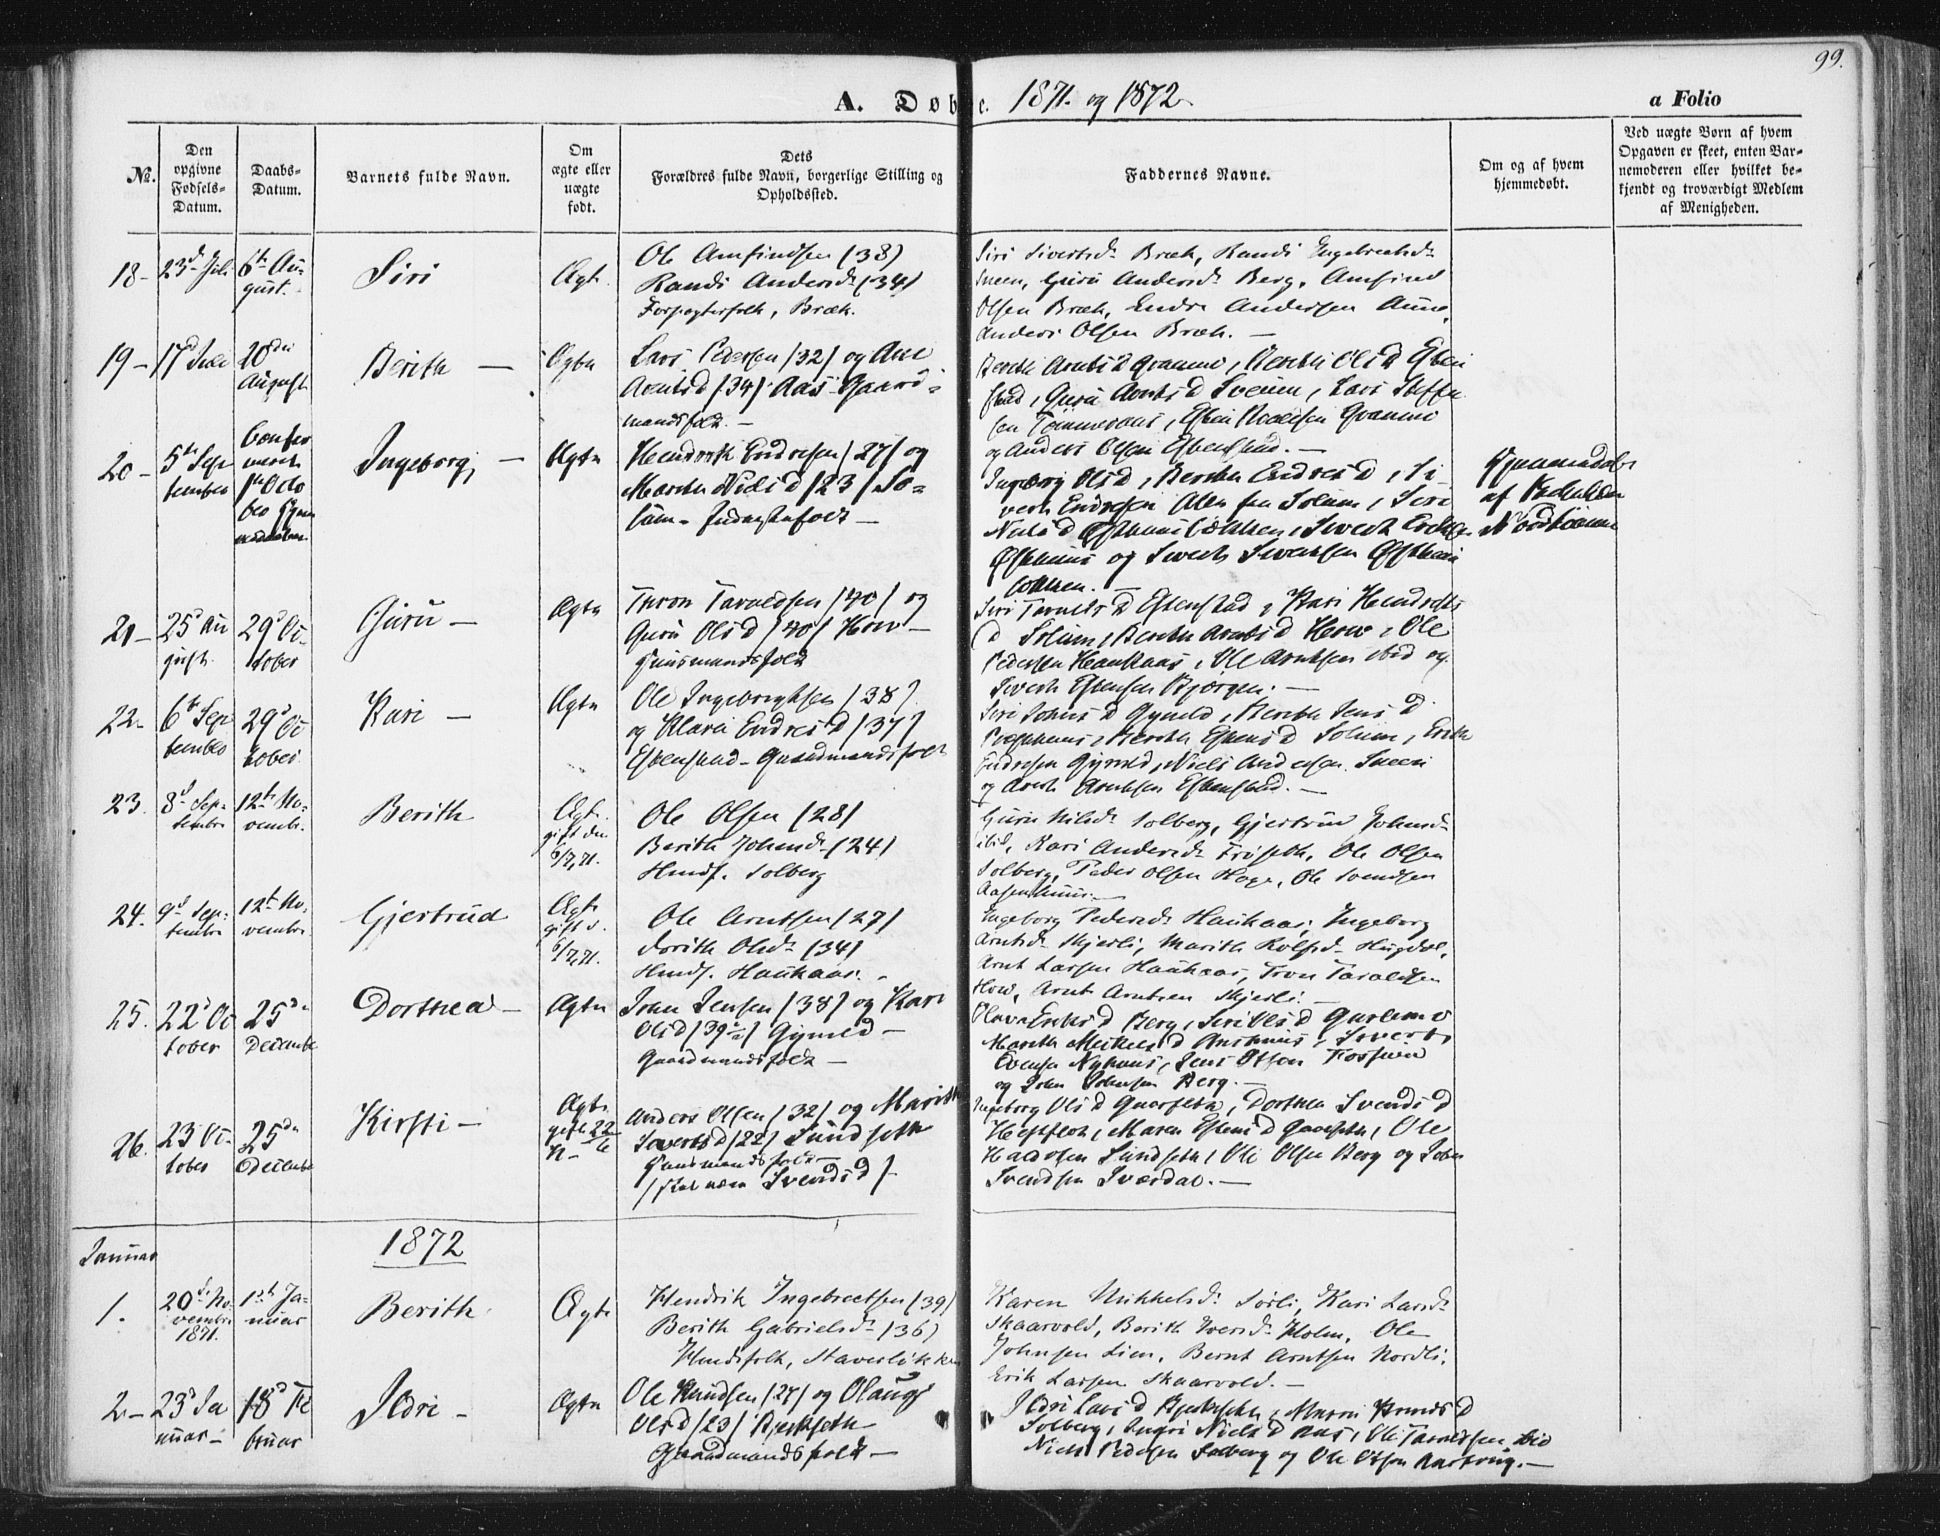 99.
A. Døbte. 1871. og 1872.
a Folio
No.
Den opgivne Fødsels-Datum.
Daabs-Datum.
Barnets fulde Navn.
Om ægte eller uægte født.
Dets Forældres fulde Navn, borgerlige Stilling og Opholdssted.
Faddernes Navne.
Om og af hvem hjemmedøbt.
Ved uægte Børn af hvem Opgaven er skeet, enten Barnemoderen eller hvilket bekjendt og troværdigt Medlem af Menigheden.
18 - 23d Juli
6te August.
Siri
Ægte.
Ole Arnfindsen (38)
Randi Andersd. (34)
Forpagterfolk, Bræk.
Siri Sivertsd. Bræk, Randi Engebretsd.
Sneen, Guru Andersd. Berg, Arnfind
Olsen Bræk, Endre Andersen Aune,
Anders Olsen Bræk. -
19 - 17d Juli
20de August
Berith -
Ægte
Lars Pedersen (32) og Ane
Arntsd (34) Aas Gaard-
mandsfolk. -
Berith Arntsd Qvamme, Berith Olsd Esten
stad, Guru Arntsd Sveen, Lars Steffen
sen Tømmeraas, Esten Qvamme
og Anders Olsen Estenstad. -
20 - 5te September
1ste Octo
ber
Ingeborg -
Ægte
Hendrik Endresen (27) og
Marith Nielsd (23) So-
lum - Inderstfolk -
Ingeborg Olsd, Berith Endresd, Si-
vert Endresen Alle fra Solum, Siri
Nielsd Østhuusløkken, Sivert
Østhuus og Sivert Sivertsen Østhuus
løkken. -
Hjemmedøbt
af
21 - 25d Au
gust.
29d Oc
tober
Guru -
Ægte
Thron Taraldsen (40) og
Guru Olsd (40) How -
Huusmandsfolk
Siri Taraldsd Estenstad, Kari Hendriks
d Solum, Berith Arntsd How, Ole
Pedersen Haukaas, Ole Arntsen ibid og
Sivert Estensen Bjørgen. -
22 - 6te Sep
tember
29d Oc
tober
Kari -
Ægte
Ole Ingebrigtsen (38)
og Mari Endresd (37)
Estenstad - Gaardmandsfolk
Siri Johnsd Gynild, Berith Jensd
Berith Estensd Solum, Erik
Endresen Gynild, Niels Andersen Sneen
og Arnt Arntsen Estenstad. -
23. 8d Sep-
tember
12te No-
vembr.
Berith
Ægte.
gift den
6/7,71.
Ole Olsen (28)
Berith Johnsd. (24)
Huusf. Solberg
Guru Nilsd. Solberg, Gjertrud Johnsd.
ibid, Kari Andersd. Frøseth, Ole Olsen
Solberg, Peder Olsen Hage, Ole Svendsen
Aasenhuus. -
24. 9d Sep-
tember
12te No-
vember.
Gjertrud
Ægte
gift d.
6/7,71.
Ole Arntsen (27)
Dorith Olsd. (34)
Huusf. Haukaas. -
Ingeborg Pedersd. Haukaas, Ingeborg
Arntsd. Skjerli, Marith Rolfsd. Hugdal,
Arnt Larsen Haukaas, Tron Taraldsen
How, Arnt Arntsen Skjerli. -
25. 22d Oc
tober
25de
December
Dorthea -
Ægte
John Jensen (38) og Kari
Olsd (39) Gynild -
Gaardmandsfolk -
Olava Eriksd Berg, Siri Olsd
Marith Mikkelsd Aashuus, Sivert
Evensen Nyhuus, Jens Olsen
og John Johnsen Berg. -
26. 23 Oc-
tober
25de
December
Kirsti -
Ægte
gift 22/6
71 -
Anders Olsen (32) og Marith
Sivertsd (22) Sundseth
Huusmandsfolk -
(skal være Svendsd)
Ingeborg Olsd Gaarseth, Dorthea Svendsd
Hestflot, Maren Estensd Gaarseth, Ole
Haldorsen Sundseth, Ole Olsen Berg og John
Svendsen Sværdal. -
1872
Januar
1. 20de No-
vember
1871.
1ste Ja-
nuar
Berith
Ægte
Hendrik Ingebrectsen (39)
Berith Gabrielsd. (36)
Huusfolk, Staverløkken
Karen Mikkelsd. Sørli, Kari Larsd.
Skaarvold, Berith Iversd. Holm, Ole
Johnsen Lien, Bernt Arntsen Nordli,
Erik Larsen Skaarvold. -
2 - 23d Ja
nuar -
18d Fe
bruar
Ildri -
Ægte
Ole Knudsen (27) og Olaug
Olsd (23) Bjerkseth
Gaardmandsfolk -
Ildri Larsd Bjerkseth, Marri
Solberg, Ingri Nielsd Aas, Ole Taraldsen ibid
Niels Pedersen Solberg og Ole Olsen